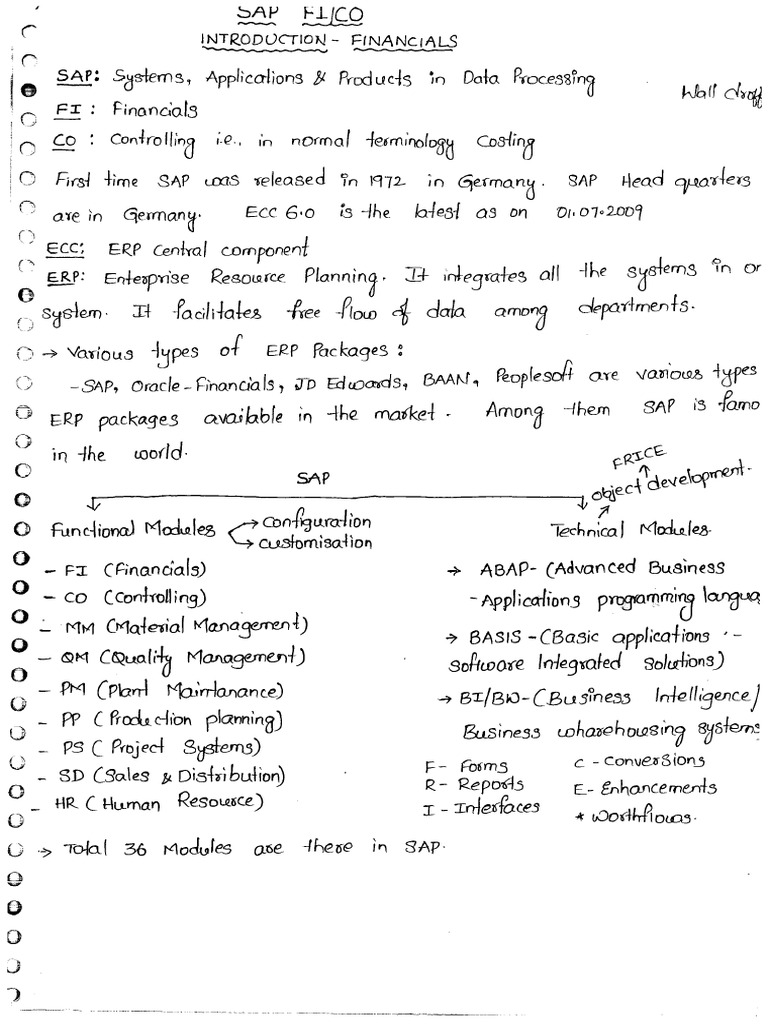 SAP FI/CO
INTRODUCTION - FINANCIALS
SAP: Systems, Applications & Products in Data Processing
Wall
FI : Financials
CO : Controlling i.e., in normal terminology Costing
First time SAP was released in 1972 in Germany. SAP Head quarters
are in Germany. ECC 6.0 is the latest as on 01.07.2009
ECC: ERP Central component
ERP: Enterprise Resource Planning. It integrates all the systems in on
system. It facilitates free flow of data among departments.
→ Various types of ERP Packages:
-SAP, Oracle-Financials, JD Edwards, BAAN, Peoplesoft are various types
ERP packages available in the market. Among them SAP is famo
in the world.
SAP
FRICE
object development.
Functional Modules → Configuration
→ customisation
Technical Modules.
- FI (Financials)
- CO (Controlling)
- MM (Material Management)
- QM (Quality Management)
- PM (Plant Maintanance)
- PP (Production planning)
- PS (Project Systems)
- SD (Sales & Distribution)
- HR (Human Resource)
→ ABAP- (Advanced Business
-Applications programming langua
→ BASIS - (Basic applications -
Software Integrated Solutions)
→ BI/BW-(Business Intelligence/
Business wharehousing systems
F - Forms
R - Reports
I - Interfaces
C - Conversions
E - Enhancements
* Workflows.
→ Total 36 Modules are there in SAP.